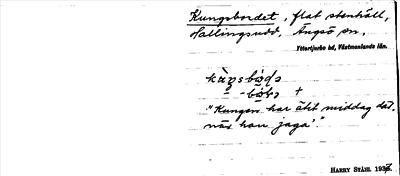 Kungsbordet, flat stenhäll,
Hallingsudd, Ängsö sn,
Yttertjurbo hd, Västmanlands län.
"Kungen har ätit middag där,
när han jaga'"
HARRY STÅHL 1937.